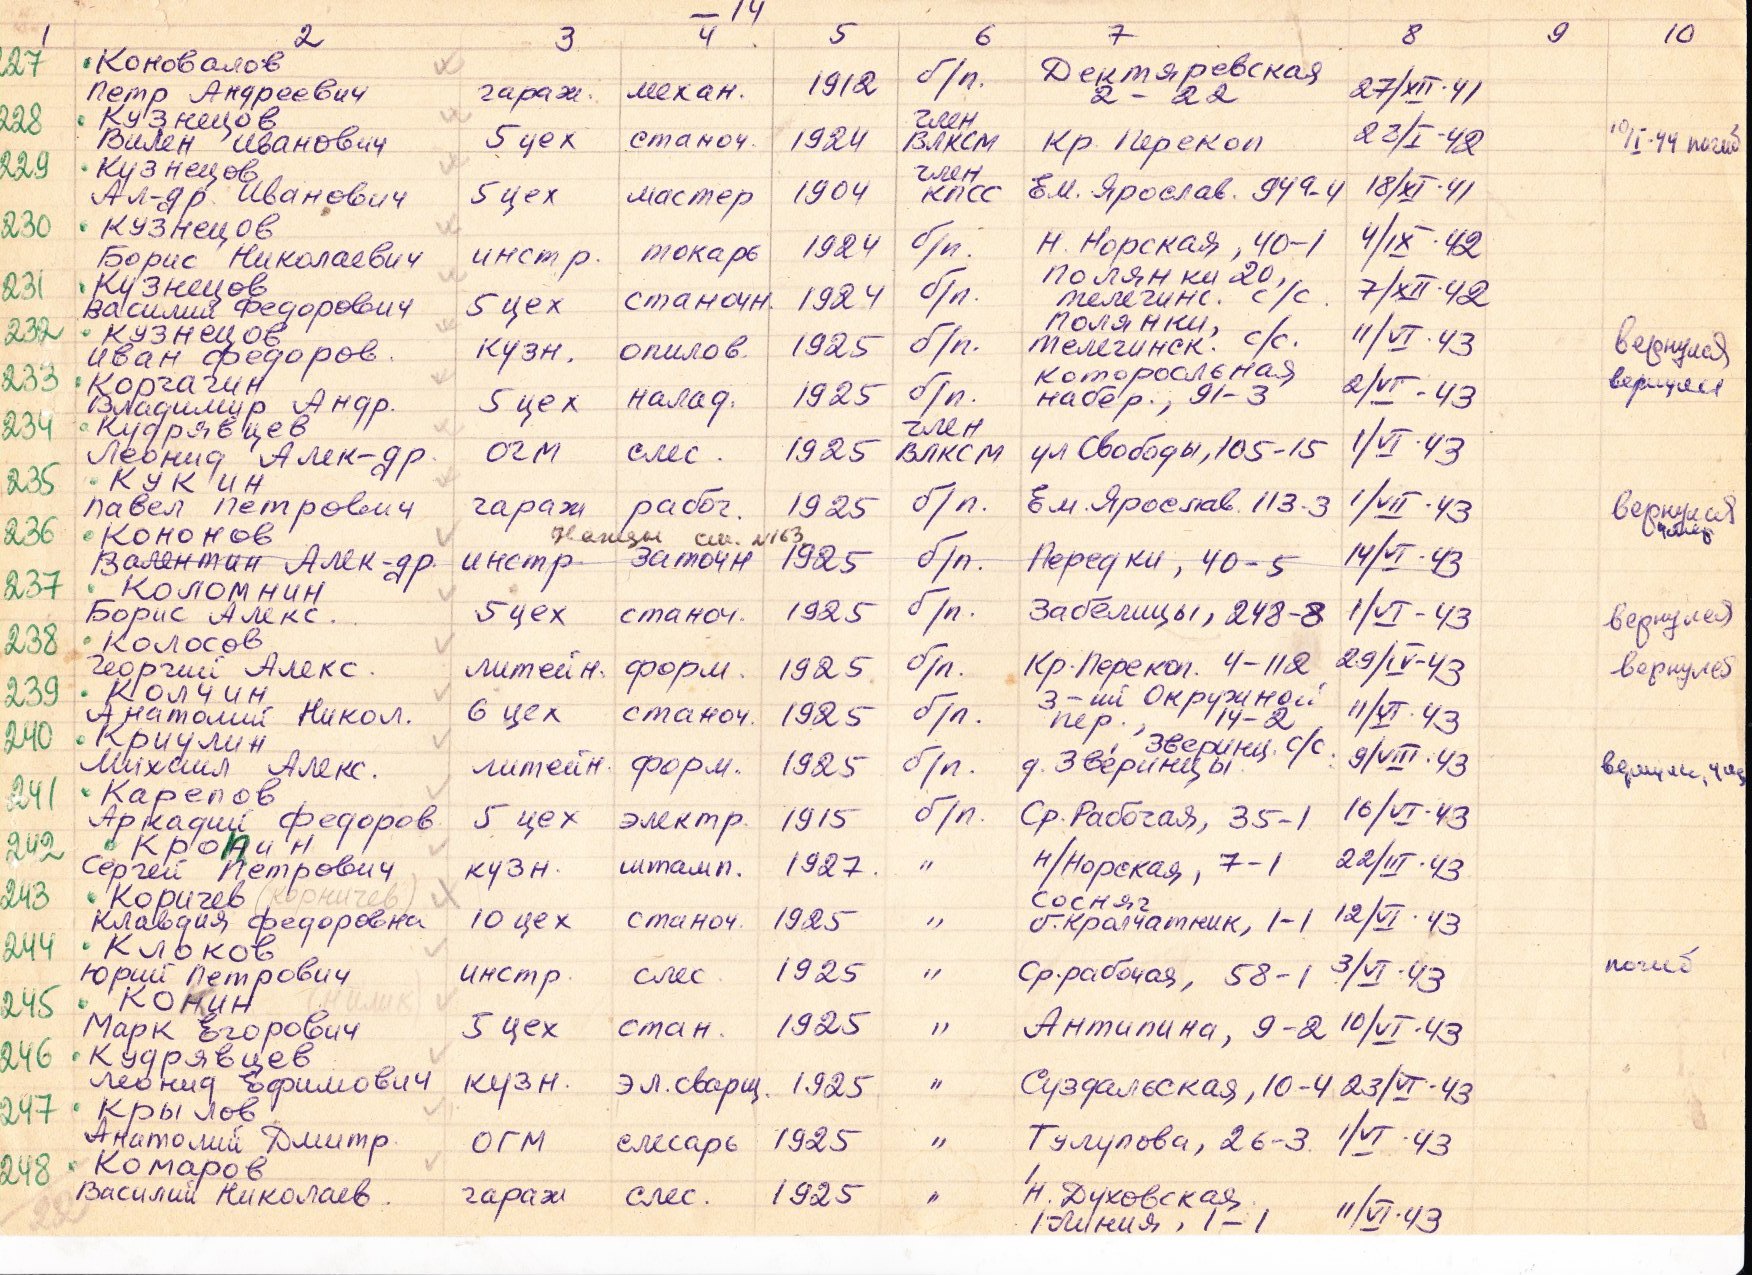 14
1 2 3 4 5 6 7 8 9 10
227 Коновалов
Петр Андреевич гараж. механ. 1912 б/п. Дектяревская 2-22 27/XII-41
228 Кузнецов
Вилен Иванович 5 цех станоч. 1924 член ВЛКСМ Кр. Перекоп 23/I-42 10/I-44 погиб
229 Кузнецов
Ал-др. Иванович 5 цех мастер 1904 член КПСС Ем. Ярослав. 949-4 18/XI-41
230 Кузнецов
Борис Николаевич инстр. токарь 1924 б/п. Н. Норская, 40-1 4/IX-42
231 Кузнецов
Василий Федорович 5 цех станочн. 1924 б/п. Полянки 20, телегинс. с/с. 7/XII-42
232 Кузнецов
Иван Федоров. кузн. опилов. 1925 б/п. Полянки, телегинск. с/с. 11/VI-43 вернулся
233 Корчагин
Владимир Андр. 5 цех налад. 1925 б/п. которосльная набер., 91-3 2/VI-43 вернулся
234 Кудрявцев
Леонид Алек-др. ОГМ слес. 1925 член ВЛКСМ ул Свободы, 105-15 1/VI-43
235 Кукин
Павел Петрович гараж рабоч. 1925 б/п. Ем. Ярослав. 113-3 1/VII-43 вернулся
236 Кононов см. №163
Валентин Алек-др. инстр. заточн 1925 б/п. Передки, 40-5 14/VI-43
237 Коломнин
Борис Алекс. 5 цех станоч. 1925 б/п. Забелицы, 248-8 1/VI-43 вернулся
238 Колосов
Георгий Алекс. литейн. форм. 1925 б/п. Кр. Перекоп. 4-112 29/IV-43 вернулся
239 Колчин
Анатолий Никол. 6 цех станоч. 1925 б/п. 3-ий Окружной пер., 14-2 11/VI-43
240 Криулин
Михаил Алекс. литейн. форм. 1925 б/п. д. Зверинцы Зверинц. с/с. 9/VIII-43
241 Карепов
Аркадий Федоров 5 цех электр. 1915 б/п. Ср. Рабочая, 35-1 16/VI-43
242 Кропин
Сергей Петрович кузн. штамп. 1927. " Н/Норская, 7-1 22/III-43
243 Коричев (корничев)
Клавдия Федоровна 10 цех станоч. 1925 " сосняч б. Кролчатник, 1-1 12/VI-43
244 Клоков
Юрий Петрович инстр. слес. 1925 " Ср. рабочая, 58-1 3/VI-43 погиб
245 Конин
Марк Егорович 5 цех стан. 1925 " Антипина, 9-2 10/VI-43
246 Кудрявцев
Леонид Ефимович кузн. эл. сварщ. 1925 " Суздальская, 10-4 23/VI-43
247 Крылов
Анатолий Дмитр. ОГМ слесарь 1925 " Тулупова, 26-3 1/VI-43
248 Комаров
Василий Николаев. гараж слес. 1925 " Н. Духовская 1-линия, 1-1 11/VI-43